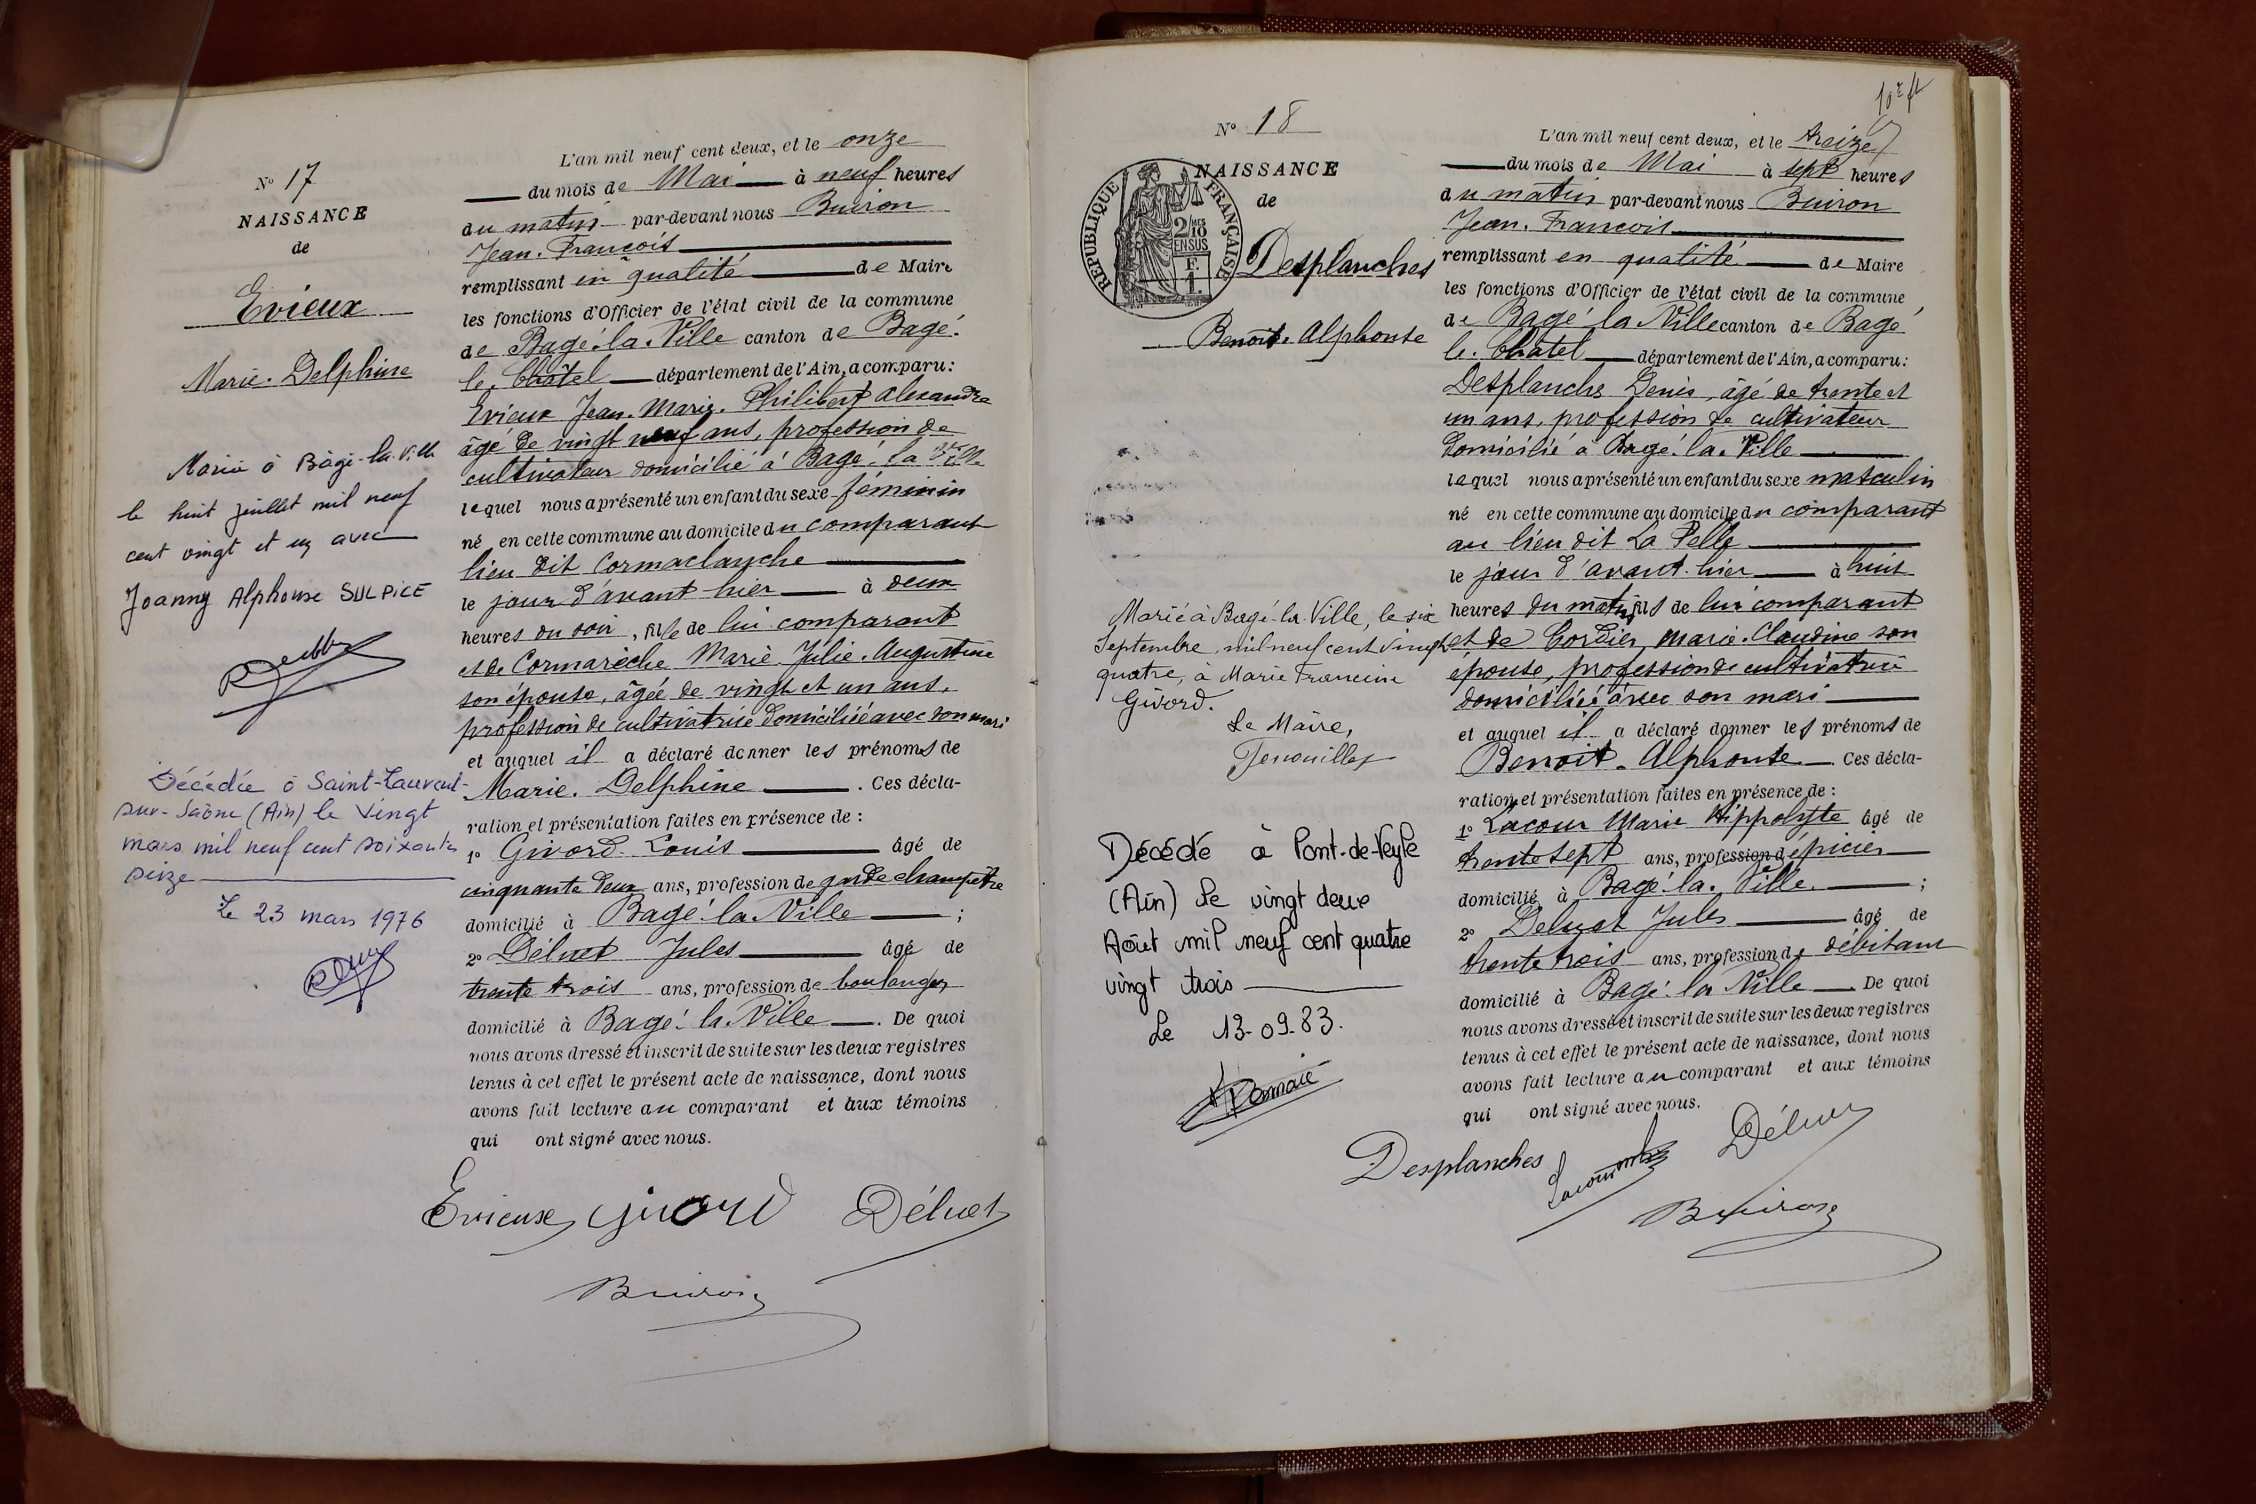 N° 17
NAISSANCE
de
Evieux
Marie. Delphine
Mariée à Bâgé-la-Ville
le huit juillet mil neuf
cent vingt et un avec
Joanny Alphonse SULPICE
Décédée à Saint-Laurent-
sur-Saône (Ain) le vingt
mars mil neuf cent soixante
seize
Le 23 mars 1976
L'an mil neuf cent deux, et le onze
du mois de Mai à neuf heures
du matin par-devant nous Buiron
Jean. François
remplissant en qualité de Maire
les fonctions d'Officier de l'état civil de la commune
de Bagé. la. Ville canton de Bagé.
le. Châtel département de l'Ain, a comparu:
Evieux Jean. Marie. Philibert Alexandre
âgé de vingt neuf ans, profession de
cultivateur domicilié à Bagé. la Ville
lequel nous a présenté un enfant du sexe féminin
né en cette commune au domicile du comparant
lieu dit Cormaclanche
le jour d'avant hier à deux
heures du soir, fille de lui comparant
et de Cormarèche Marie. Julie. Augustine
son épouse, âgée de vingt et un ans,
profession de cultivatrice domiciliée avec son mari
et auquel il a déclaré donner les prénoms de
Marie. Delphine . Ces décla-
ration et présentation faites en présence de :
1° Givord Louis âgé de
cinquante deux ans, profession de garde champêtre
domicilié à Bagé. la Ville ;
2° Déluet Jules âgé de
trente trois ans, profession de boulanger
domicilié à Bagé. la. Ville . De quoi
nous avons dressé et inscrit de suite sur les deux registres
tenus à cet effet le présent acte de naissance, dont nous
avons fait lecture au comparant et aux témoins
qui ont signé avec nous.
Evieux Givord Déluet
Buiron
N° 18
NAISSANCE
de
REPUBLIQUE FRANÇAISE
2/10 EN SUS
F. 1.
Desplanches
Benoit. Alphonse
Marié à Bagé-la-Ville, le six
Septembre mil neuf cent vingt
quatre, à Marie Francine
Givord.
Le Maire,
Décédé à Pont-de-Veyle
(Ain) le vingt deux
Août mil neuf cent quatre
vingt trois
Le 13-09-83.
L'an mil neuf cent deux, et le treize
du mois de Mai à sept heures
du matin par-devant nous Buiron
Jean. François
remplissant en qualité de Maire
les fonctions d'Officier de l'état civil de la commune
de Bagé la Ville canton de Bagé
le. Châtel département de l'Ain, a comparu:
Desplanches Denis, âgé de trente et
un ans, profession de cultivateur
domicilié à Bagé. la. Ville
lequel nous a présenté un enfant du sexe masculin
né en cette commune au domicile du comparant
au lieu dit La Pelle
le jour d'avant. hier à huit
heures du matin, fils de lui comparant
et de Cordier, Marie. Claudine son
épouse, profession de cultivatrice
domiciliée avec son mari
et auquel il a déclaré donner les prénoms de
Benoit. Alphonse . Ces décla-
ration et présentation faites en présence de :
1° Lacour Marie Hippolyte âgé de
trente sept ans, profession d epicier
domicilié à Bagé. la. Ville. ;
2° Deluet Jules âgé de
trente trois ans, profession de débitant
domicilié à Bagé. la Ville . De quoi
nous avons dressé et inscrit de suite sur les deux registres
tenus à cet effet le présent acte de naissance, dont nous
avons fait lecture au comparant et aux témoins
qui ont signé avec nous.
Desplanches Lacour Déluet
Buiron